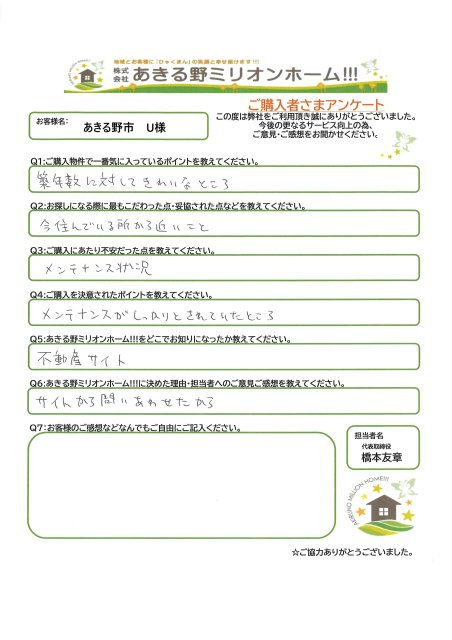 地域とお客様に「ひゃくまん」の笑顔と幸せ届けます!!!
株式会社 あきる野ミリオンホーム!!!
ご購入者さまアンケート
この度は弊社をご利用頂き誠にありがとうございました。
今後の更なるサービス向上の為、
ご意見・ご感想をお聞かせください。
お客様名:
あきる野市 U様
Q1:ご購入物件で一番気に入っているポイントを教えてください。
築年数に対してきれいなところ
Q2:お探しになる際に最もこだわった点・妥協された点などを教えてください。
今住んでいる所から近いこと
Q3:ご購入にあたり不安だった点を教えてください。
メンテナンス状況
Q4:ご購入を決意されたポイントを教えてください。
メンテナンスがしっかりとされていたところ
Q5:あきる野ミリオンホーム!!!をどこでお知りになったか教えてください。
不動産サイト
Q6:あきる野ミリオンホーム!!!に決めた理由・担当者へのご意見ご感想を教えてください。
サイトから問いあわせたから
Q7:お客様のご感想などなんでもご自由にご記入ください。
担当者名
代表取締役
橋本友章
AKIRUNO MILLION HOME!!!
☆ご協力ありがとうございました。